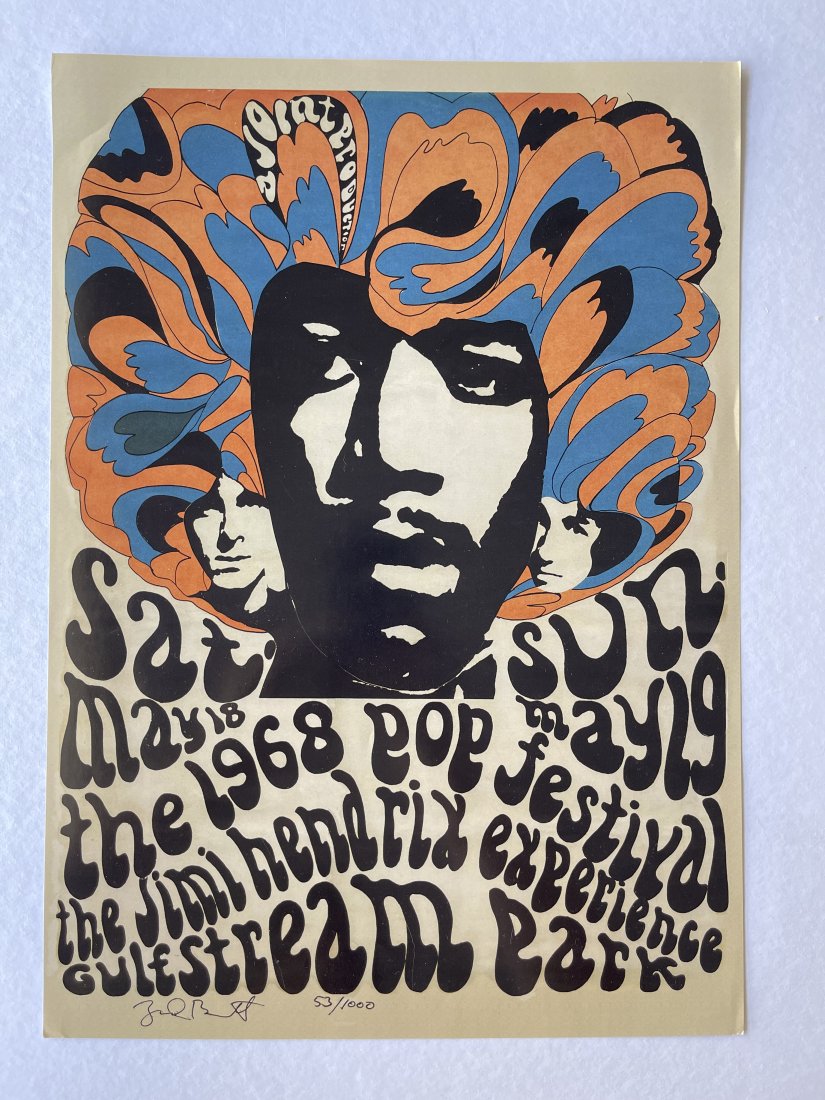 a Joint Production
Sat. Sun.
May 18 May 19
the 1968 pop festival
the Jimi hendrix experience
Gulfstream Park
53/1000